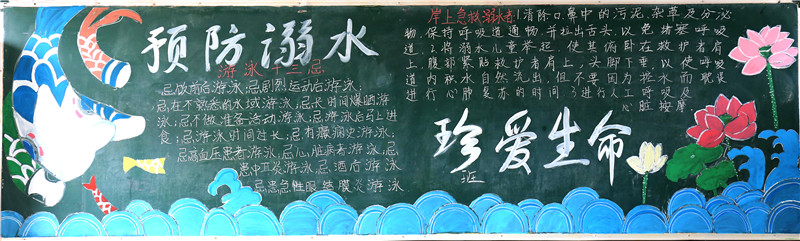 预防溺水
游泳十三忌
忌饭前后游泳;忌剧烈运动后游泳;
忌在不熟悉的水域游泳;忌长时间爆晒游
泳;忌不做准备活动游泳;忌游泳后马上进
食;忌游泳时间过长;忌有癫痫史游泳;
忌高血压患者游泳;忌心脏病者游泳;忌
患中耳炎游泳;忌酒后游泳
忌患急性眼结膜炎游泳
岸上急救溺水者:1清除口鼻中的污泥,杂草及分泌
物,保持呼吸道通畅,并拉出舌头,以免堵塞呼吸
道,2将溺水儿童举起,使其俯卧在救护者肩
上,腹部紧贴救护者肩上,头脚下垂,以使呼吸
道内积水自然流出,但不要因为控水而耽误
进行心肺复苏的时间,3进行人工呼吸及
心脏按摩
珍爱生命